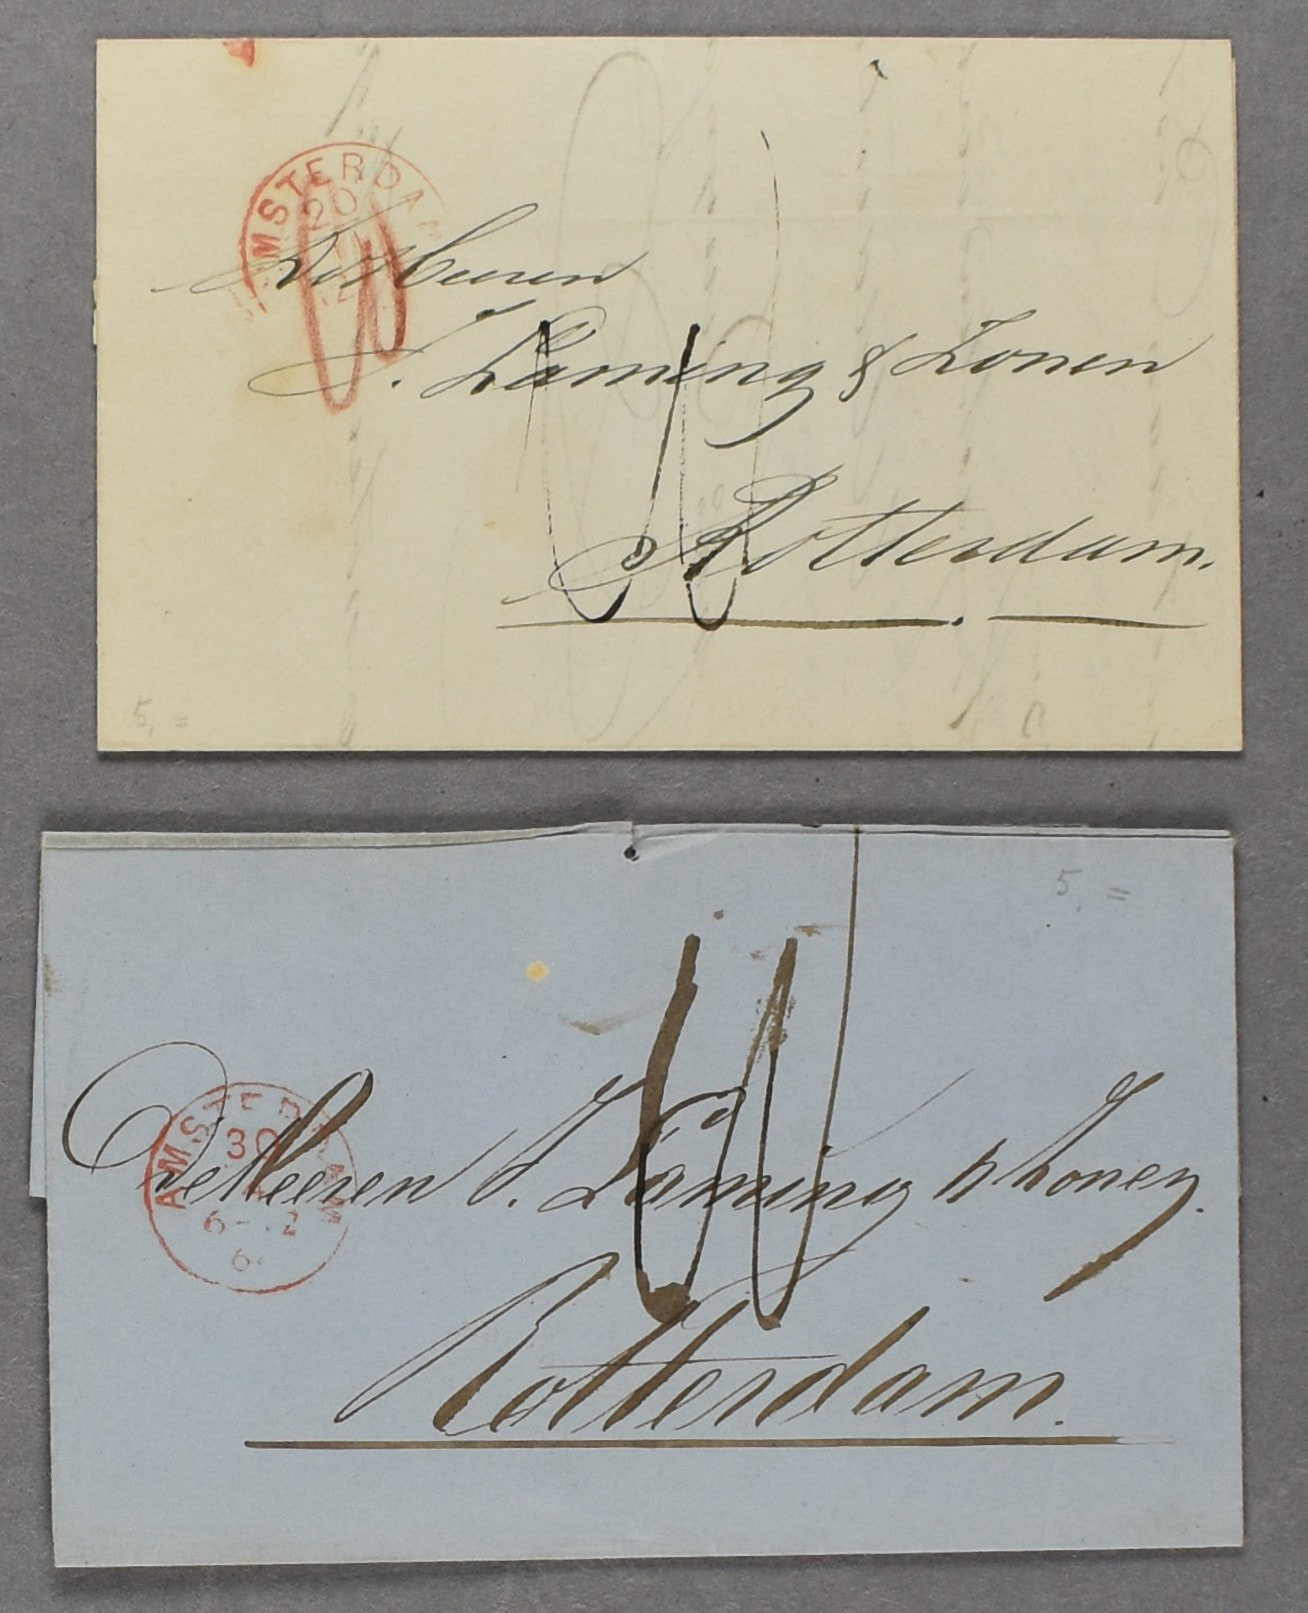 AMSTERDAM
20
De Heeren
J. Läming & Zonen
Rotterdam.
5,=
5,=
AMSTERDAM
30
De Heeren J. Läming & Zonen.
Rotterdam.